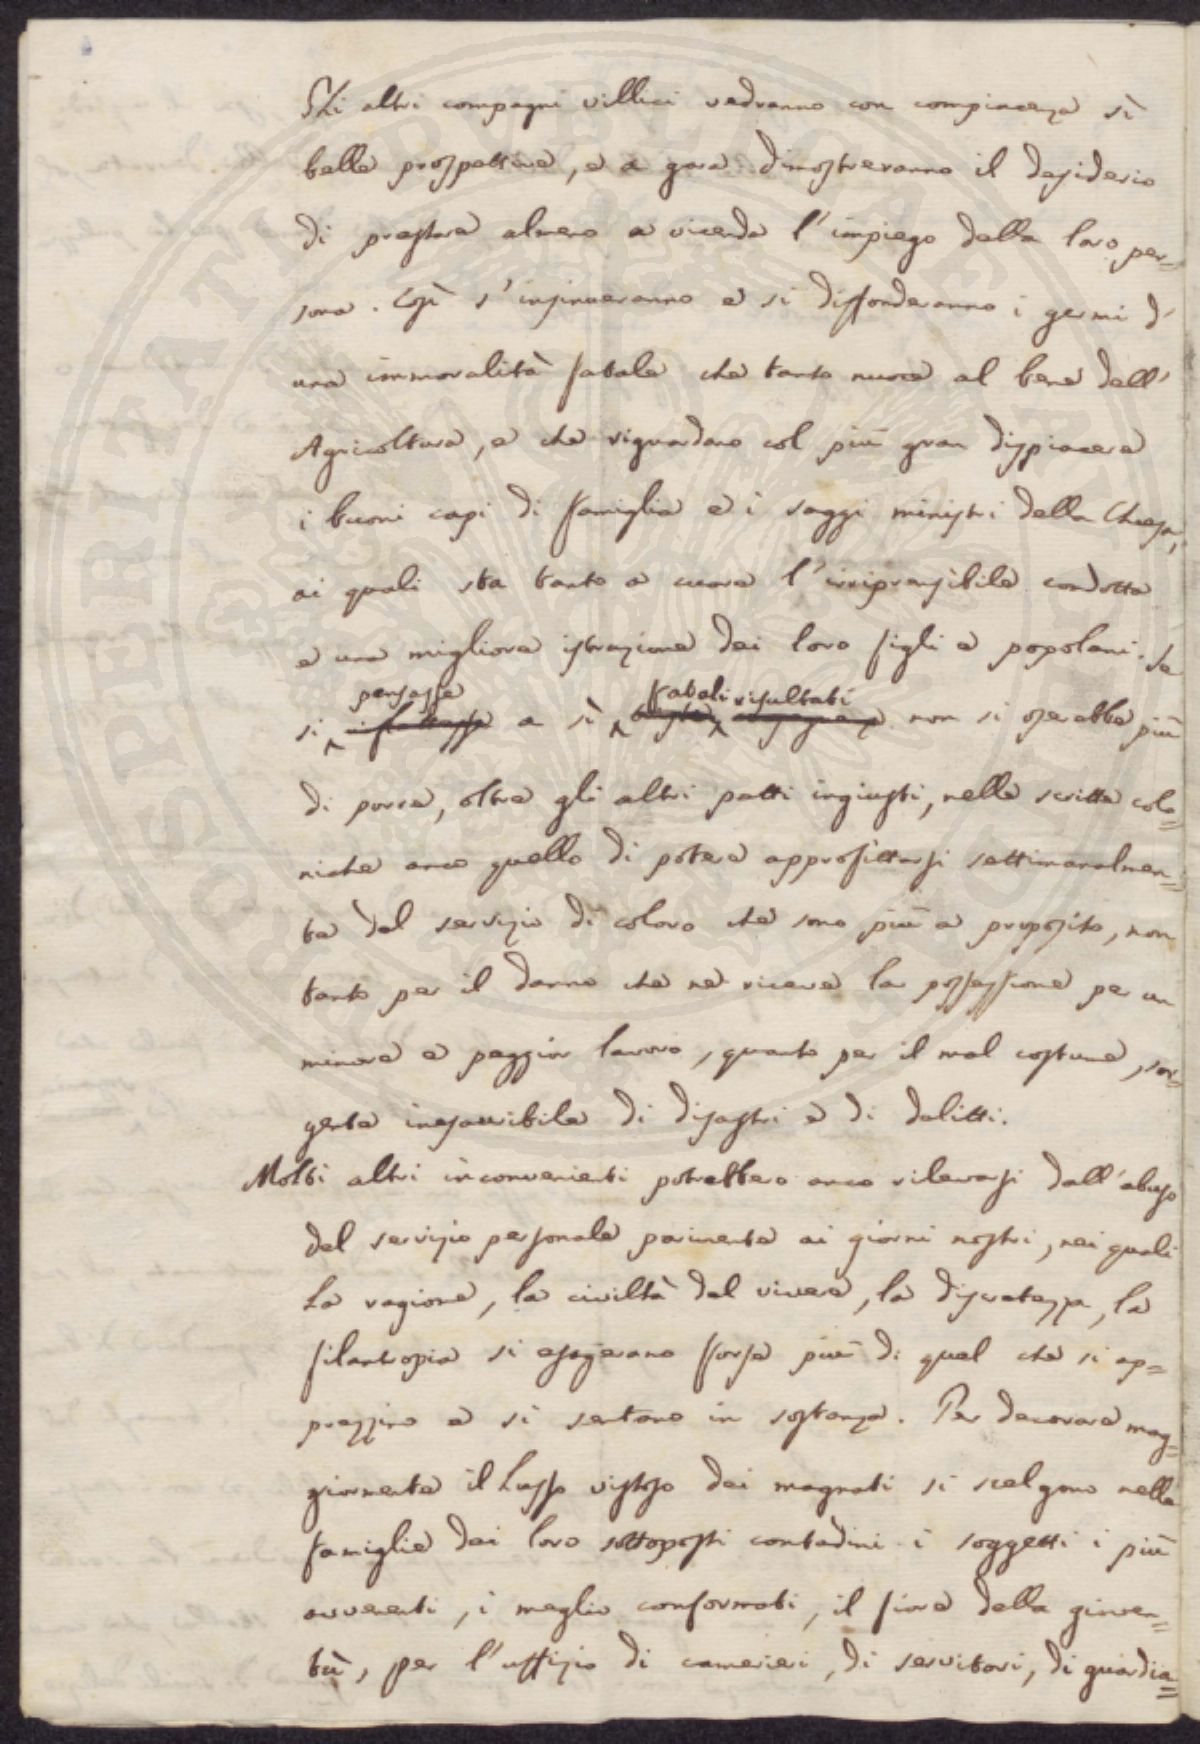 Gli altri compagni villici vedranno con compiacenza sì
belle prospettive, e a gara dimostreranno il desiderio
di prestare almeno a vicenda l'impiego della loro per=
sona. Così s'insinueranno e si diffonderanno i germi d'
una immoralità fatale che tanto nuoce al bene dell'
Agricoltura, e che riguardano col più gran dispiacere
i buoni capi di famiglia e i saggi ministri della Chiesa,
ai quali sta tanto a cuore l'irriprensibile condotta
e una migliore istruzione dei loro figli e popolani. Se
pensasse fatali risultati
si a sì non si oserebbe più
di porre, oltre gli altri patti ingiusti, nelle scritte colo=
niche anco quello di potere approfittarsi settimanalmen=
te del servizio di coloro che sono più a proposito, non
tanto per il danno che ne riceve la possessione per un
minore e peggior lavoro, quanto per il mal costume, sor=
gente inesauribile di disastri e di delitti.
Molti altri inconvenienti potrebbero anco rilevarsi dall'abuso
del servizio personale parimente ai giorni nostri, nei quali
la ragione, la civiltà del vivere, la discretezza, la
filantropia si esagerano forse più di quel che si ap=
prezzino e si sentano in sostanza. Per decorare mag=
giormente il Lusso vistoso dei magnati si scelgono nelle
famiglie dei loro sottoposti contadini i soggetti i più
avvenenti, i meglio conformati, il fiore della gioven=
tù, per l'uffizio di camerieri, di servitori, di guardia=
PROSPERITATI PUBLICAE AUGENDAE